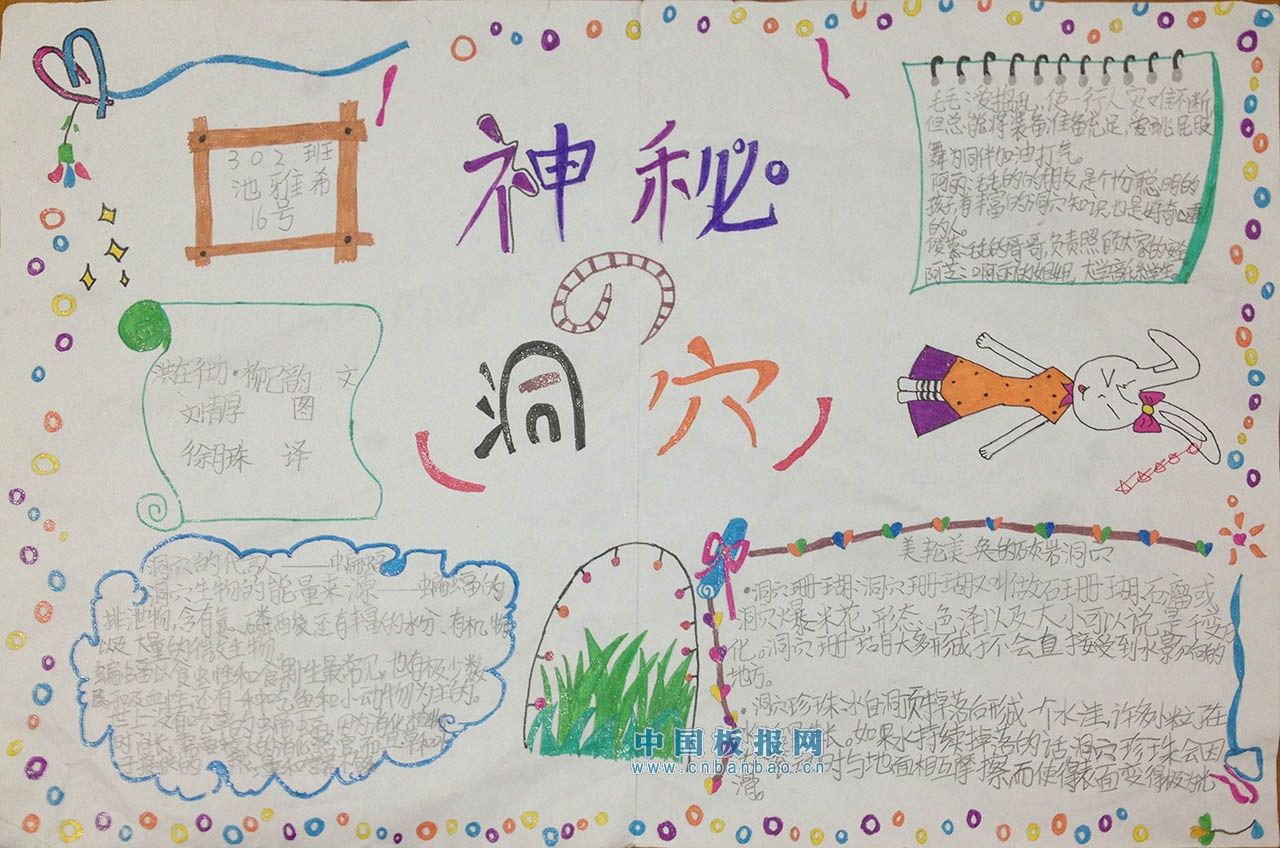 302班
池雅希
16号
神秘
の
洞穴
毛毛:爱捣乱,使一行人灾难不断,
但总能将装备准备充足,爱跳屁股
舞为同伴加油打气。
阿丽:毛毛的好朋友,是个十分聪明的
孩子,有丰富的洞穴知识,也是好奇心重
的人。
毛毛的哥哥,负责照顾大家的安全
阿芝:阿丽的姐姐,大学音乐系学生。
洪在彻·柳己韵 文
文情厚 图
徐月珠 译
洞穴的代言人——蝙蝠
洞穴生物的能量来源——蝙蝠的
排泄物,含有氮、磷
还有丰富的水分、有机物
以及大量的微生物。
蝙蝠以食虫性和食果性最常见,也有极少数
属和吸血性,还有一种吃鱼和小动物为主的。
美轮美奂的砍岩洞穴
·洞穴珊瑚:洞穴珊瑚又叫做石珊瑚、石
洞穴爆米花,形态、色泽以及大小可以说是千变万
化。洞穴珊瑚大多形成于不会直接受到水影响的
地方。
·洞穴珍珠:水自洞顶掉落后形成一个水洼,许多小粒在
水的
长。如果水持续掉落的话,洞穴珍珠会因
时与地面相互摩擦而使得表面变得极光
滑。
中国板报网
www.cnbanbao.cn